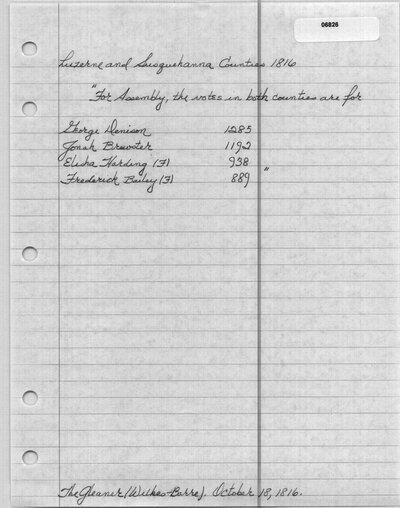 06826
Luzerne and Susquehanna Counties 1816
"For Assembly, the votes in both counties are for
George Denison 1285
Jonah Brewster 1192
Elisha Harding (F) 938
Frederick Bailey (F) 889 "
The Gleaner (Wilkes-Barre). October 18, 1816.